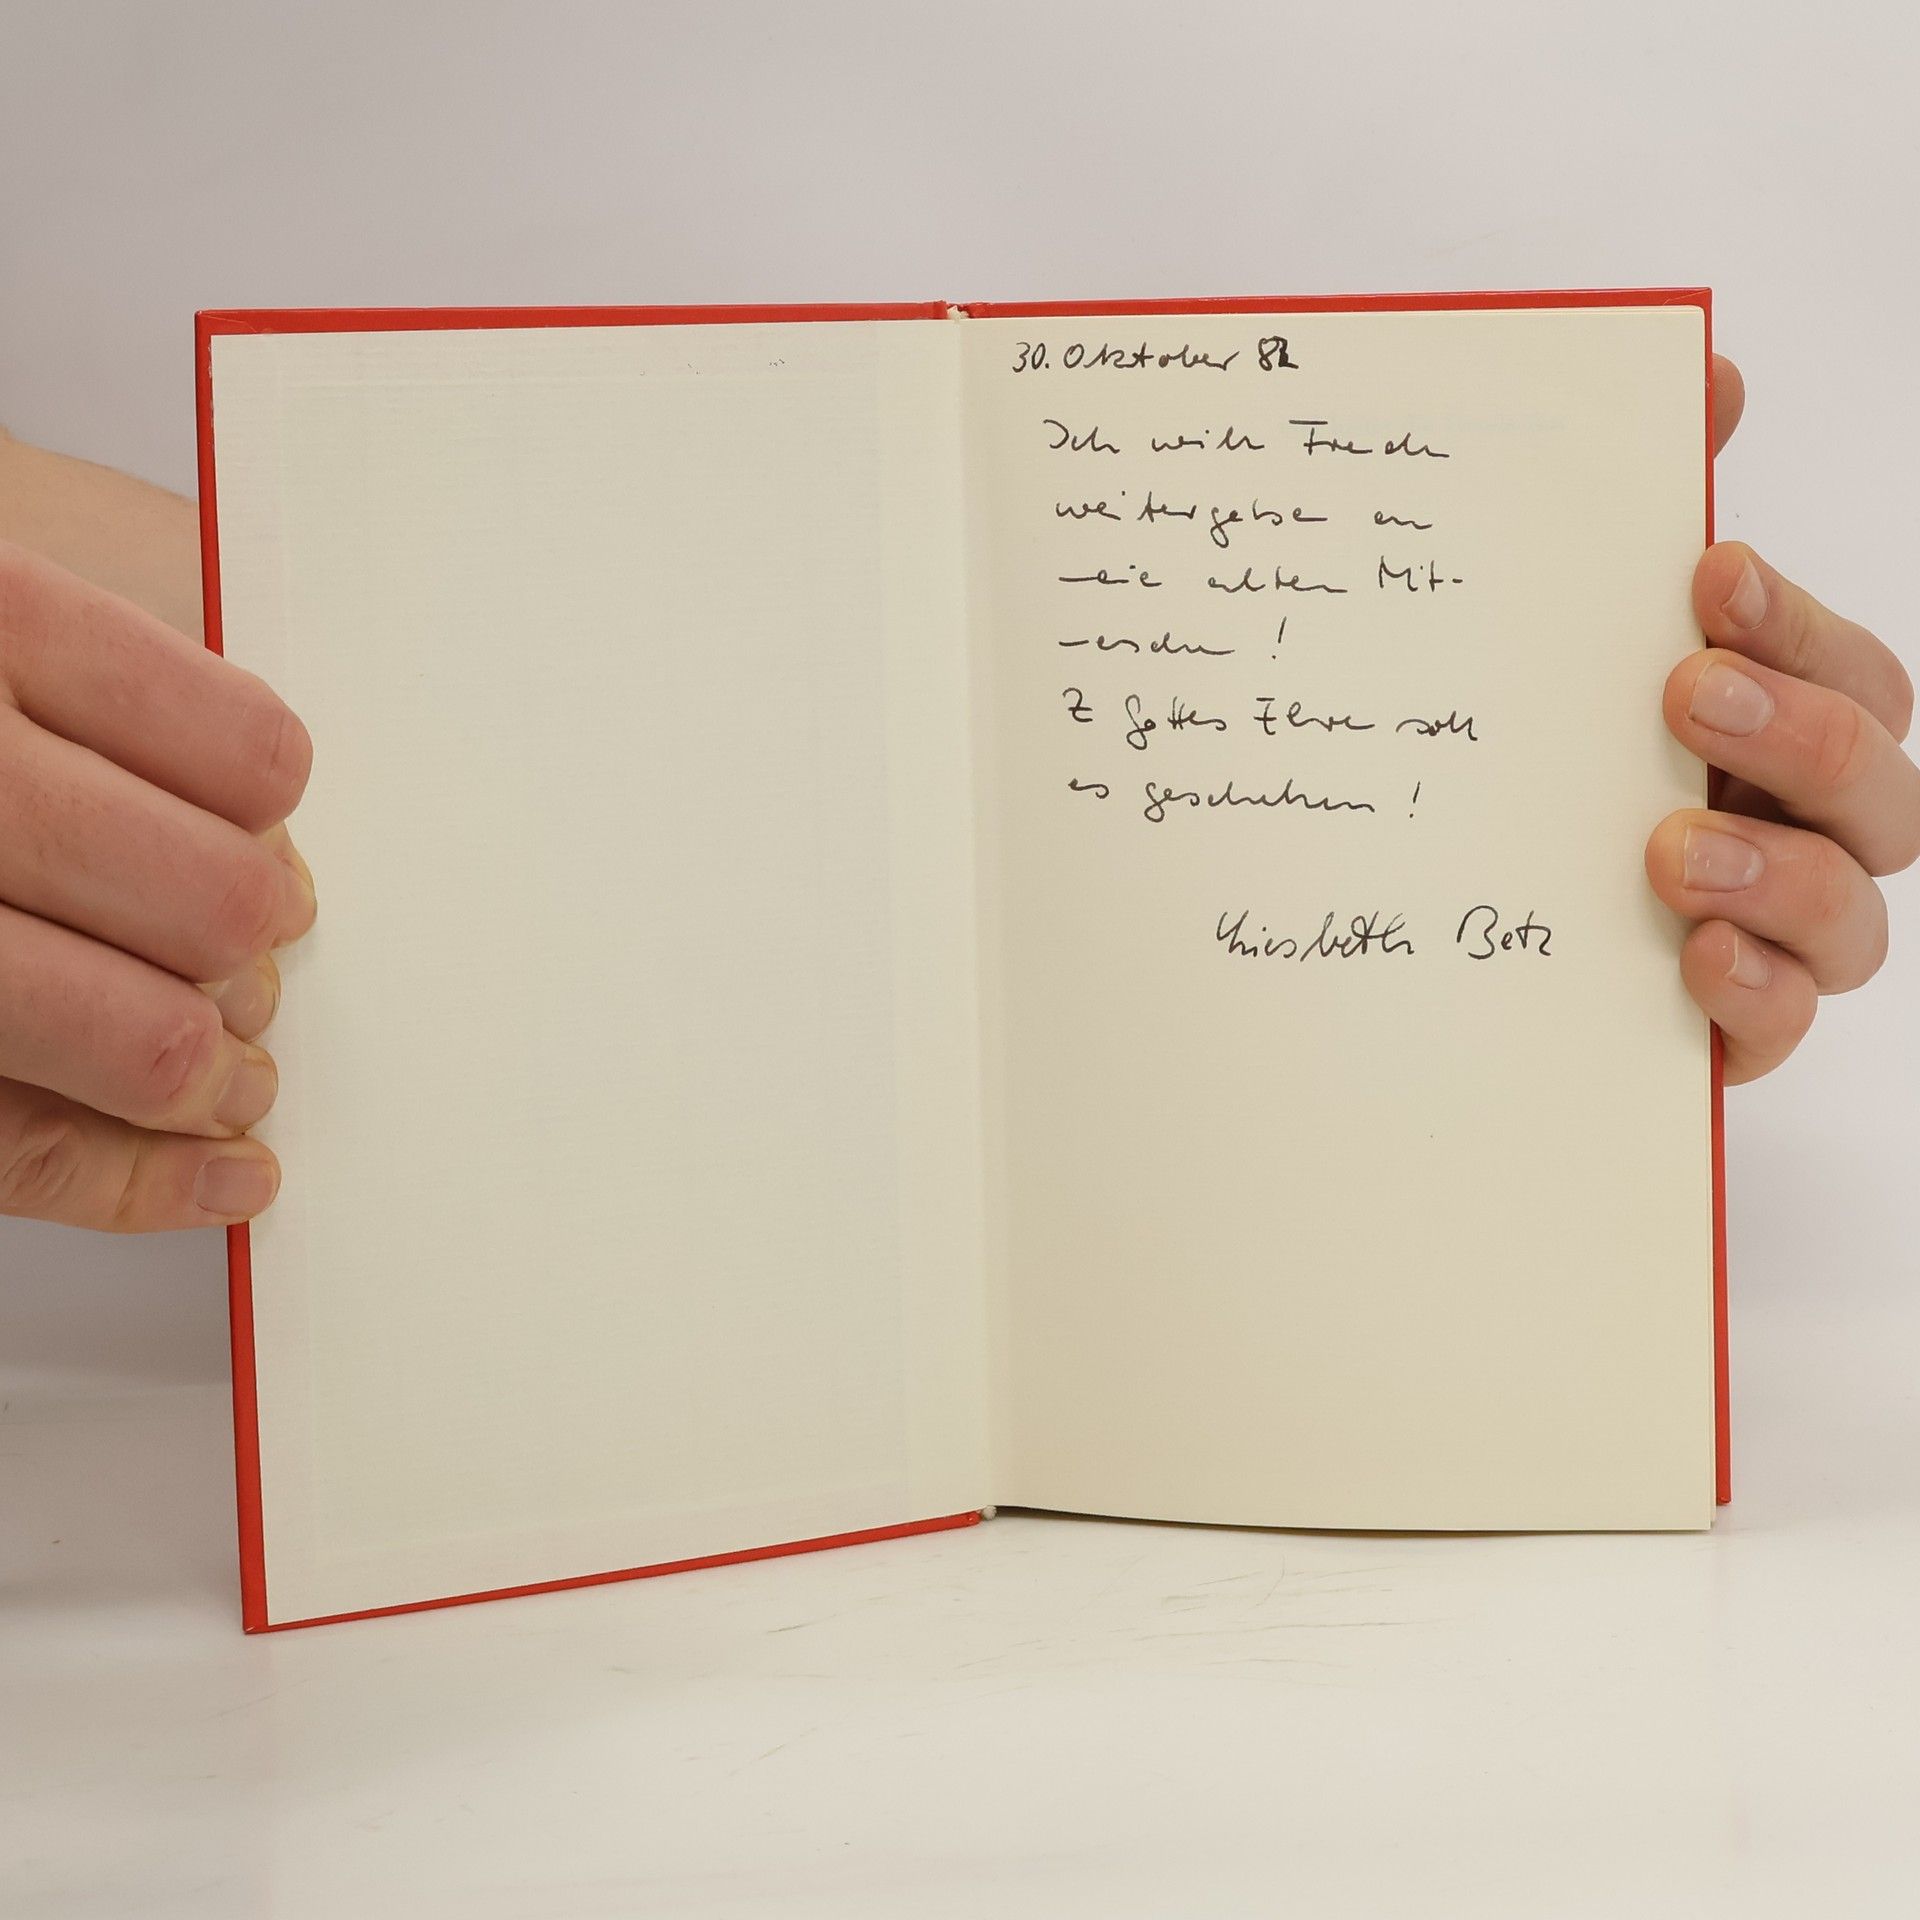 30. Oktober 82
Ich will Freude
weitergeben an
meine alten Mit-
menschen!
Z Gottes Ehre soll
es geschehen!
Betz